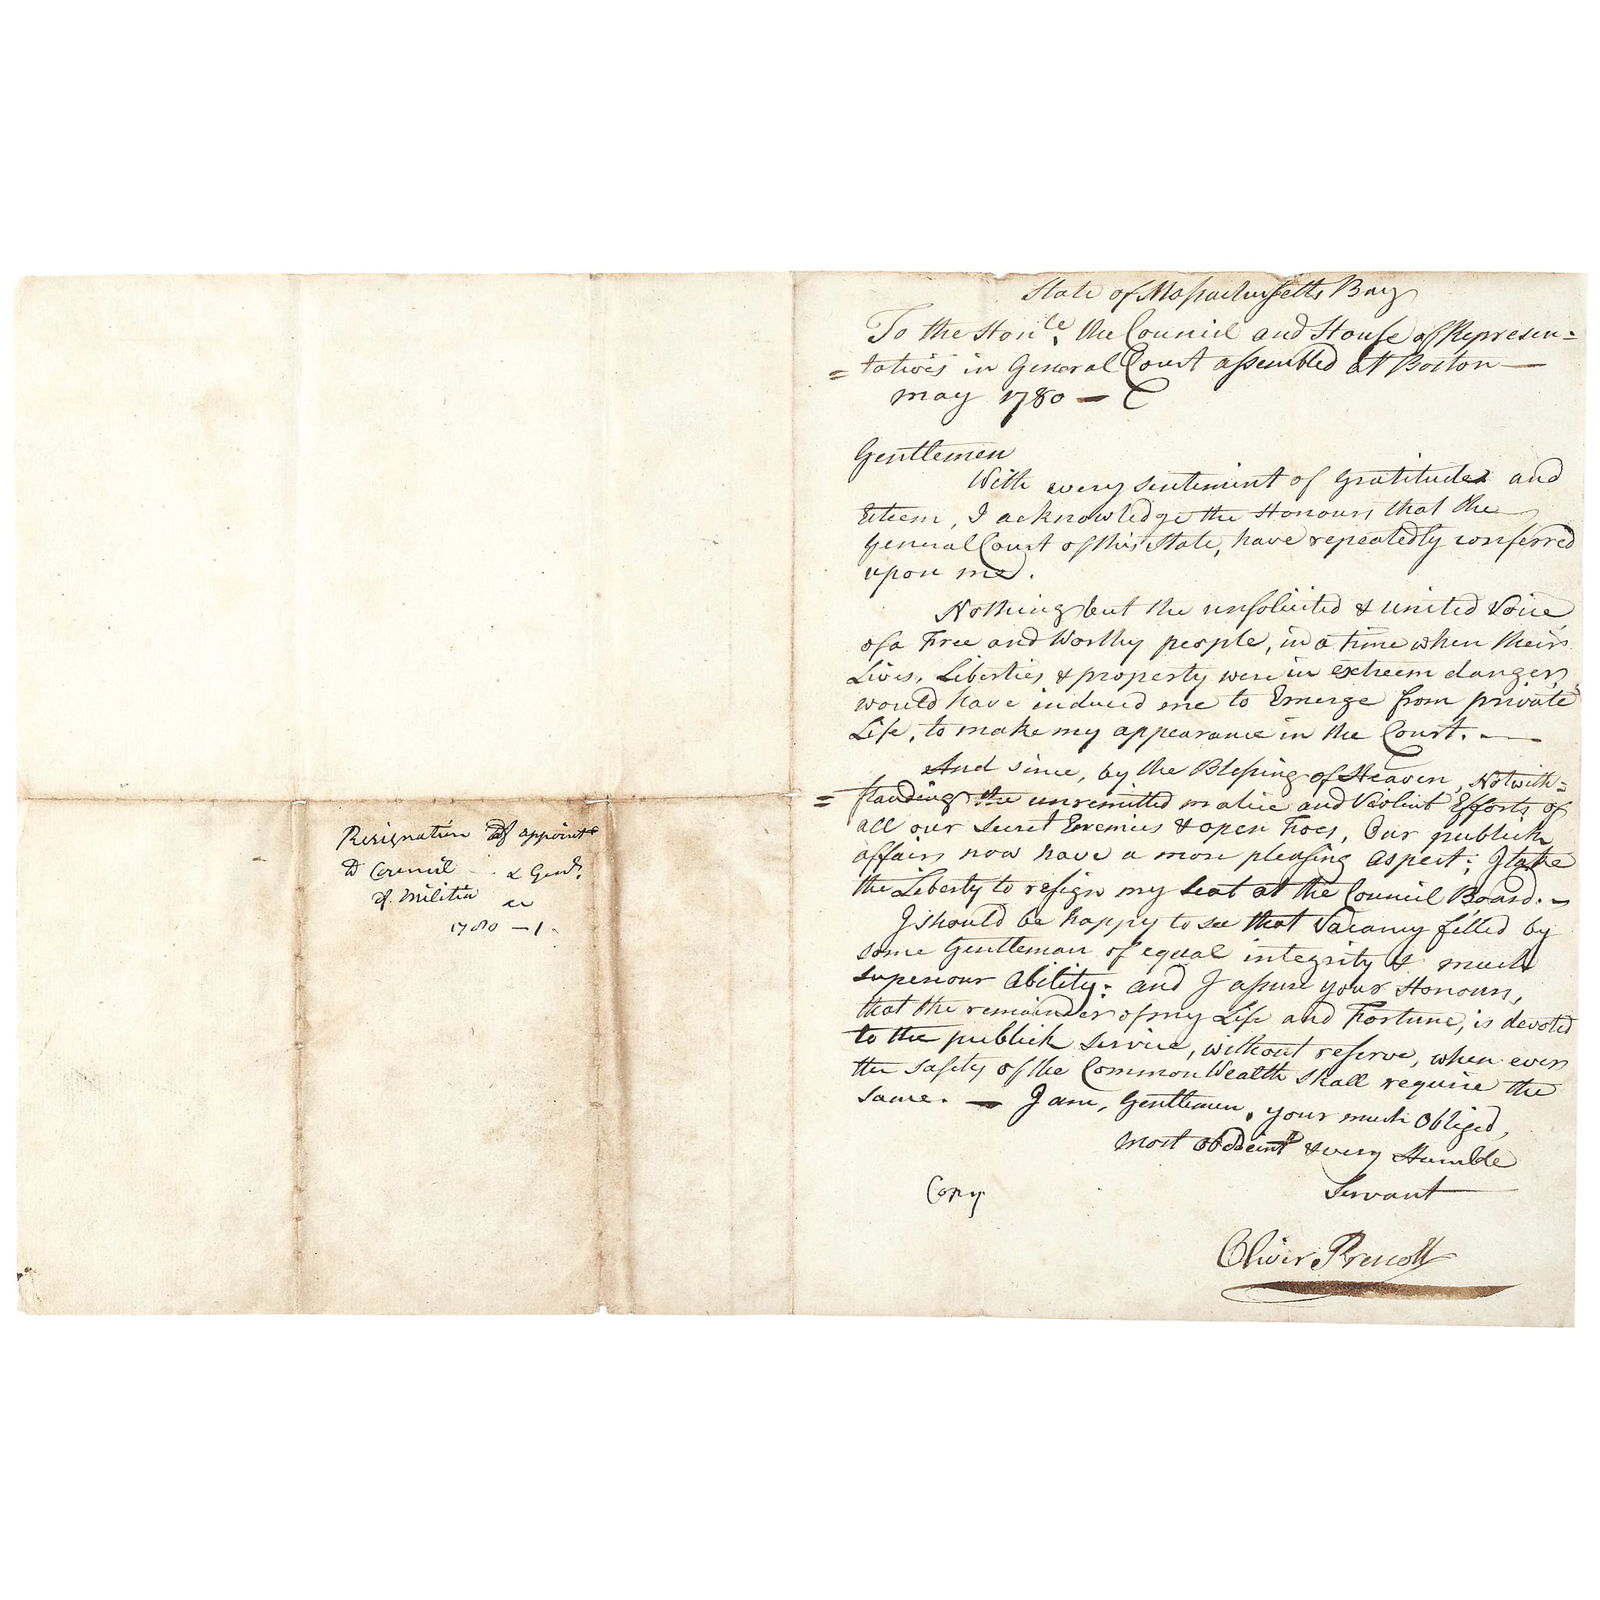 State of Massachusetts Bay
To the Honle. the Council and House of Represen=
=tatives in General Court assembled at Boston —
May 1780 —
Gentlemen
With every sentiment of gratitude and
Esteem, I acknowledge the Honours that the
General Court of this State, have repeatedly conferred
upon me.
Nothing but the unsolicited & united Voice
of a Free and Worthy people, in a time when their
Lives, Liberties & property were in extreem danger,
would have induced me to Emerge from private
Life, to make my appearance in the Court. —
And since, by the Blessing of Heaven, Notwith=
=standing the unremitted malice and Violent Efforts of
all our Secret Enemies & open Foes, Our publick
affairs now have a more pleasing aspect; I take
the Liberty to resign my Seat at the Council Board. —
I should be happy to see that Vacancy filled by
some Gentleman of equal integrity & much
superiour ability: and I assure your Honours,
that the remainder of my Life and Fortune, is devoted
to the publick service, without reserve, when ever
the safety of the CommonWealth shall require the
same. — I am, Gentlemen, your much Obliged,
most obedient & very Humble
Servant
Copy
Oliver Prescott
Resignation of appoint
to Council & Genl.
of Militia
1780 — 1.